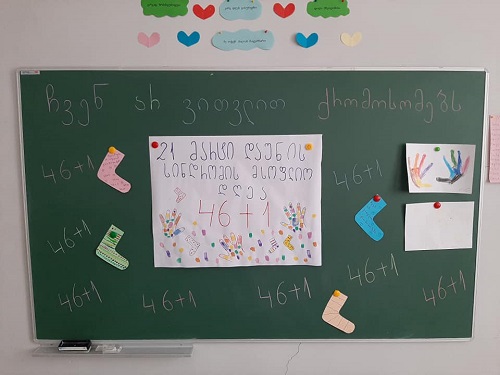 ჩვენ არ ვითვლით ქრომოსომებს
21 მარტი დაუნის
სინდრომის მსოფლიო
დღეა
46+1
46+1
46+1
46+1
46+1
46+1
46+1
46+1
46+1